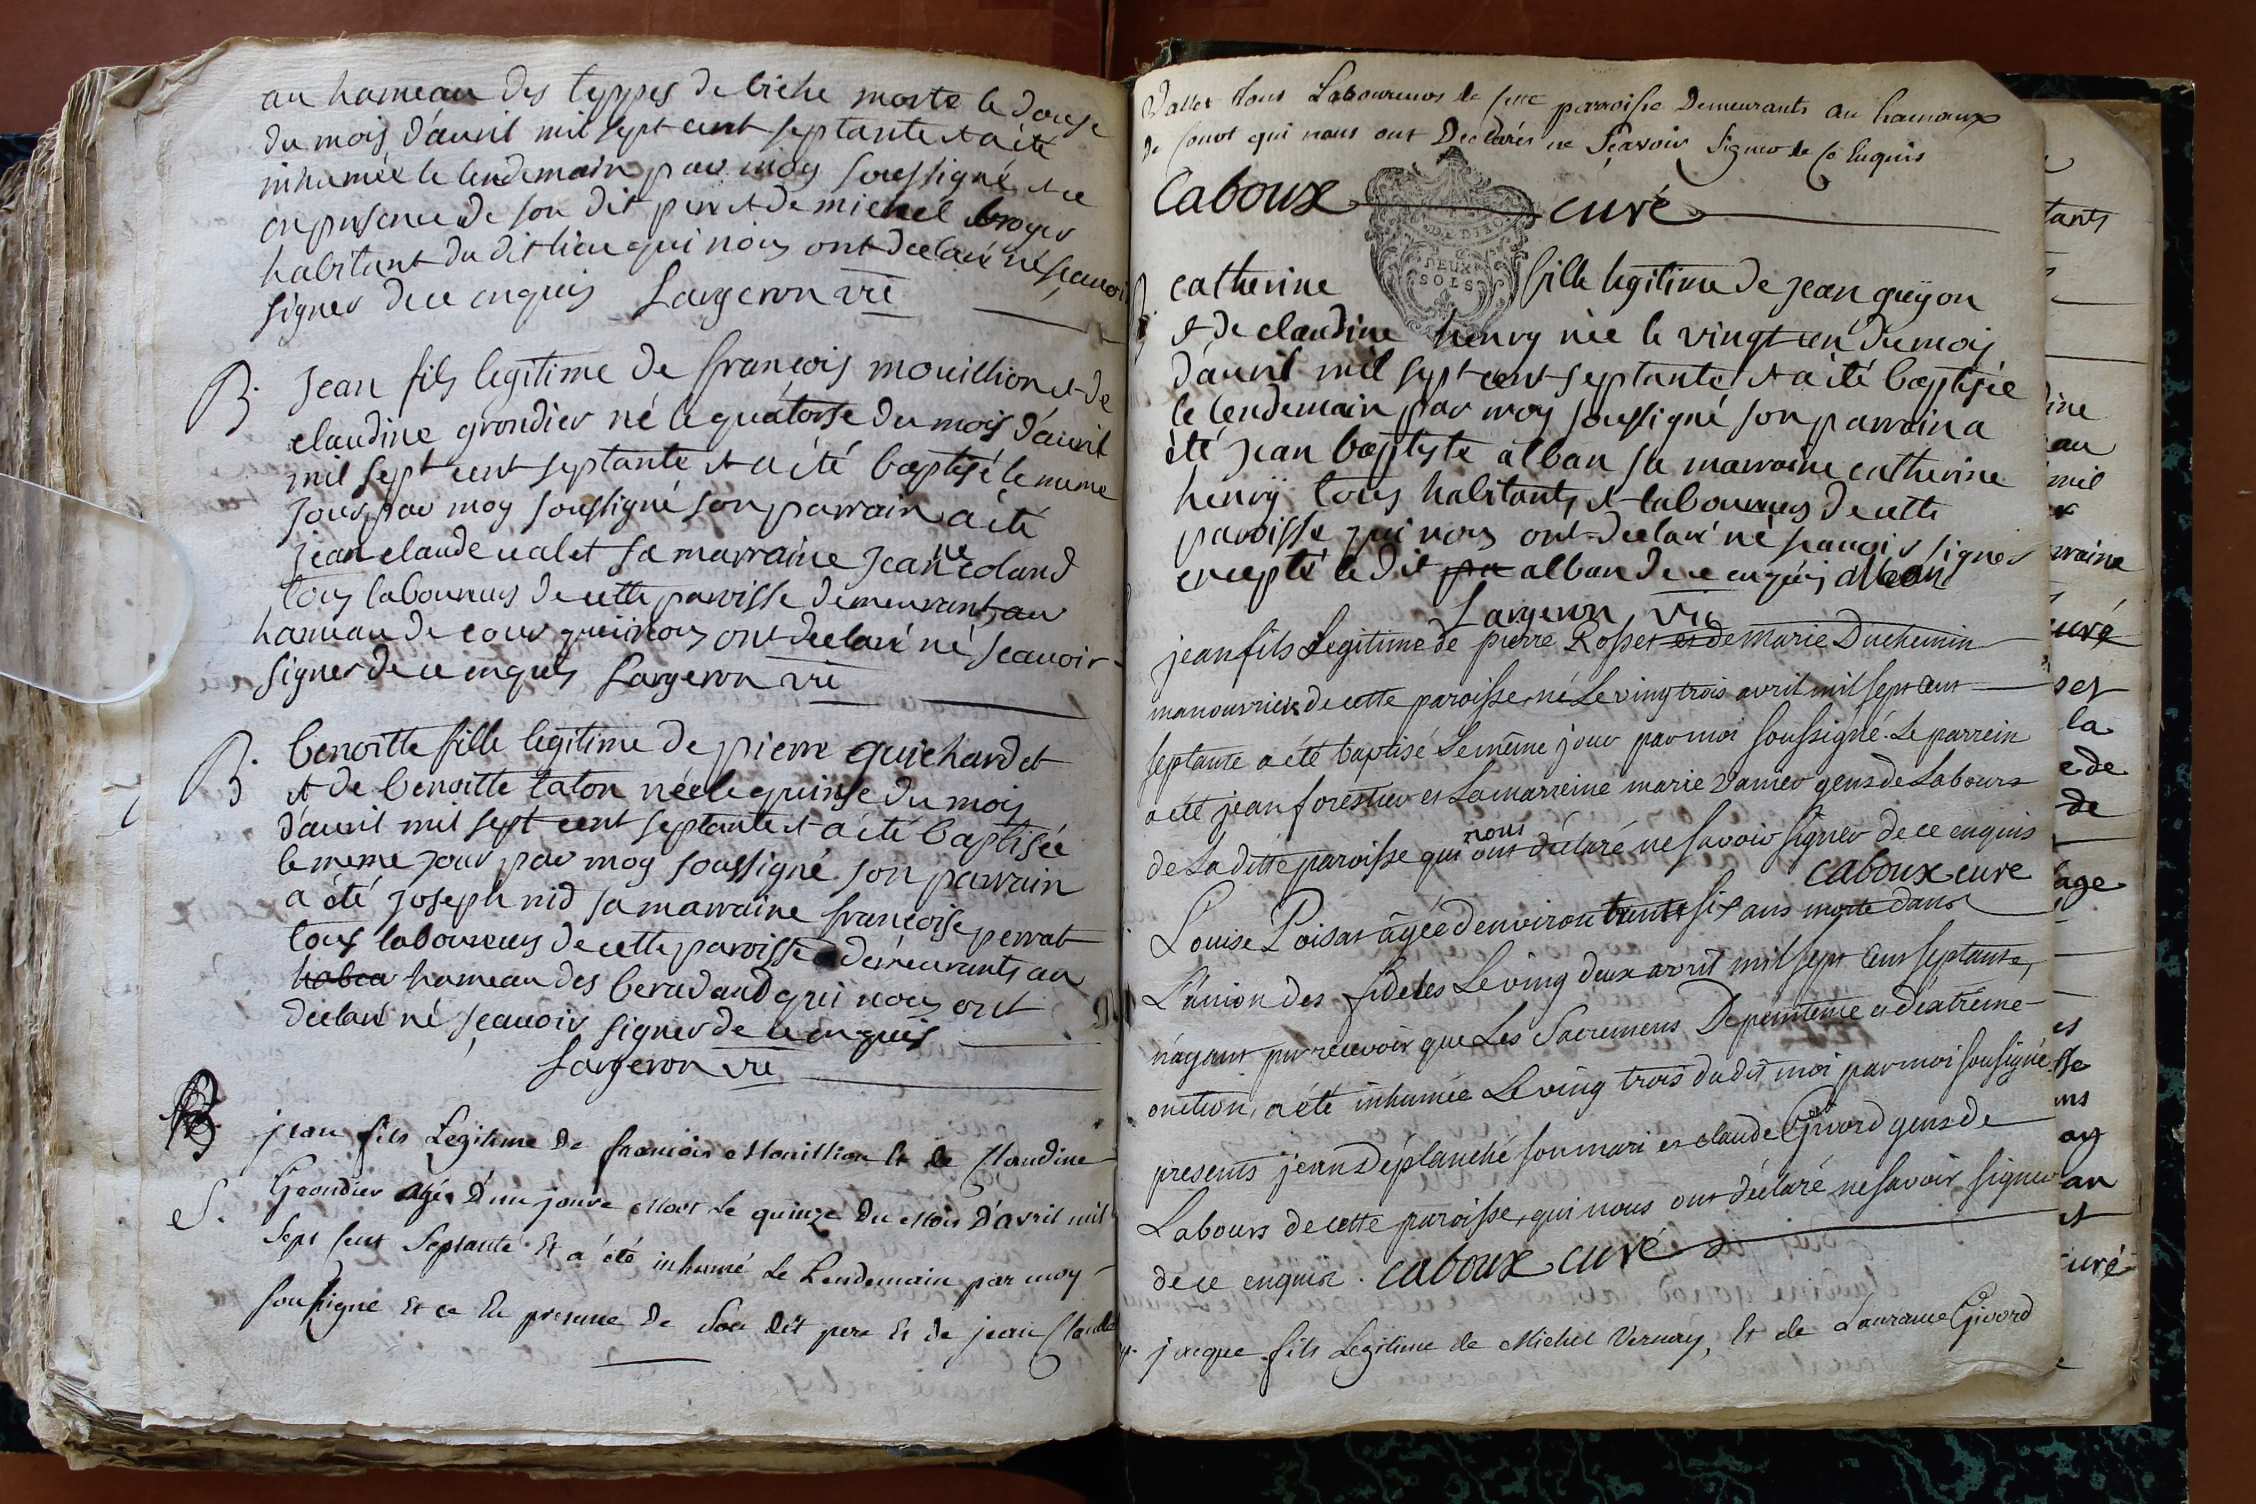 au hameau des teppes de biche morte le douse
du mois d'avril mil sept cent septante et a été
inhumée le lendemain par moy soussigné et ce
en presence de son dit pere et de michel broyer
habitant du dit lieu qui nous ont declaré né scavoir
signer de ce enquis Largeron vic
B. Jean fils legitime de françois mouillion et de
claudine grondier né le quatorse du mois d'avril
mil sept cent septante et a été baptisé le meme
jour par moy soussigné son parrain a été
jean claude valet sa marraine Jeanne coland
tous laboureurs de cette paroisse demeurant au
hameau de cour qui nous ont declaré né scavoir
signer de ce enquis Largeron vic
B. benoitte fille legitime de pierre guichardet
et de benoitte laton née le quinse du mois
d'avril mil sept cent septante et a été baptisée
le meme jour par moy soussigné son parrain
a été joseph nid sa marraine françoise perrat
tous laboureurs de cette paroisse demeurants au
habea hameau des beradand qui nous ont
declaré né scavoir signer de ce enquis
Largeron vic
B. jean fils Legitime de francois Mouillion Et de Claudine
S. Grondier Agé D'un jour Mort Le quinze Du Mois D'avril mil
Sept Cent Septante Et a été inhumé Le Lendemain par moy
Soussigné Et ce En presence de Son dit pere Et de jean Claude
Vallet tous Laboureurs de Cette parroisse Demeurants au hamaux
De Couvt qui nous ont Declarés ne Sçavoir Signer de Ce Enquis
Caboux curé
DEUX
SOLS
B. catherine fille legitime de jean guÿon
et de claudine henry née le vingt un du mois
d'avril mil sept cent septante et a été baptisée
le lendemain par moy soussigné son parrain a
été Jean baptyste alban sa marraine catherine
henrÿ tous habitants et laboureurs de cette
paroisse qui nous ont declaré né scavoir signer
excepté le dit pa alban de ce enquis alban
Largeron vic
jean fils Legitime de pierre Rosset et de Marie Duchemin
manouvrier de cette paroisse, né Le ving trois avril mil sept Cent
septante a été baptisé Le même jour par moi soussigné. Le parrein
a été jean forestier et La marreine marie Vanier gens de Labours
de La ditte paroisse qui nous ont déclaré ne savoir signer de ce enquis
caboux cure
Louise Poisat âgée d'environ trente six ans morte dans
L'union des fideles Le ving deux avril mil sept Cent septante,
n'ayant pu recevoir que Les Sacremens De penitence et d'extrême
onction, a été inhumée Le ving trois dudit moi par moi sousigné
presents jean Déplanché son mari et claude Givord gens de
Labours de cette paroisse, qui nous ont déclaré ne savoir signer
de ce enquis. caboux curé
jacque fils Legitime de Michel Vernay, Et de Laurance Givord
tants
ine
au
mil
rraine
curé
set
la
e de
de
age
es
sse
ns
ay
an
et
curé